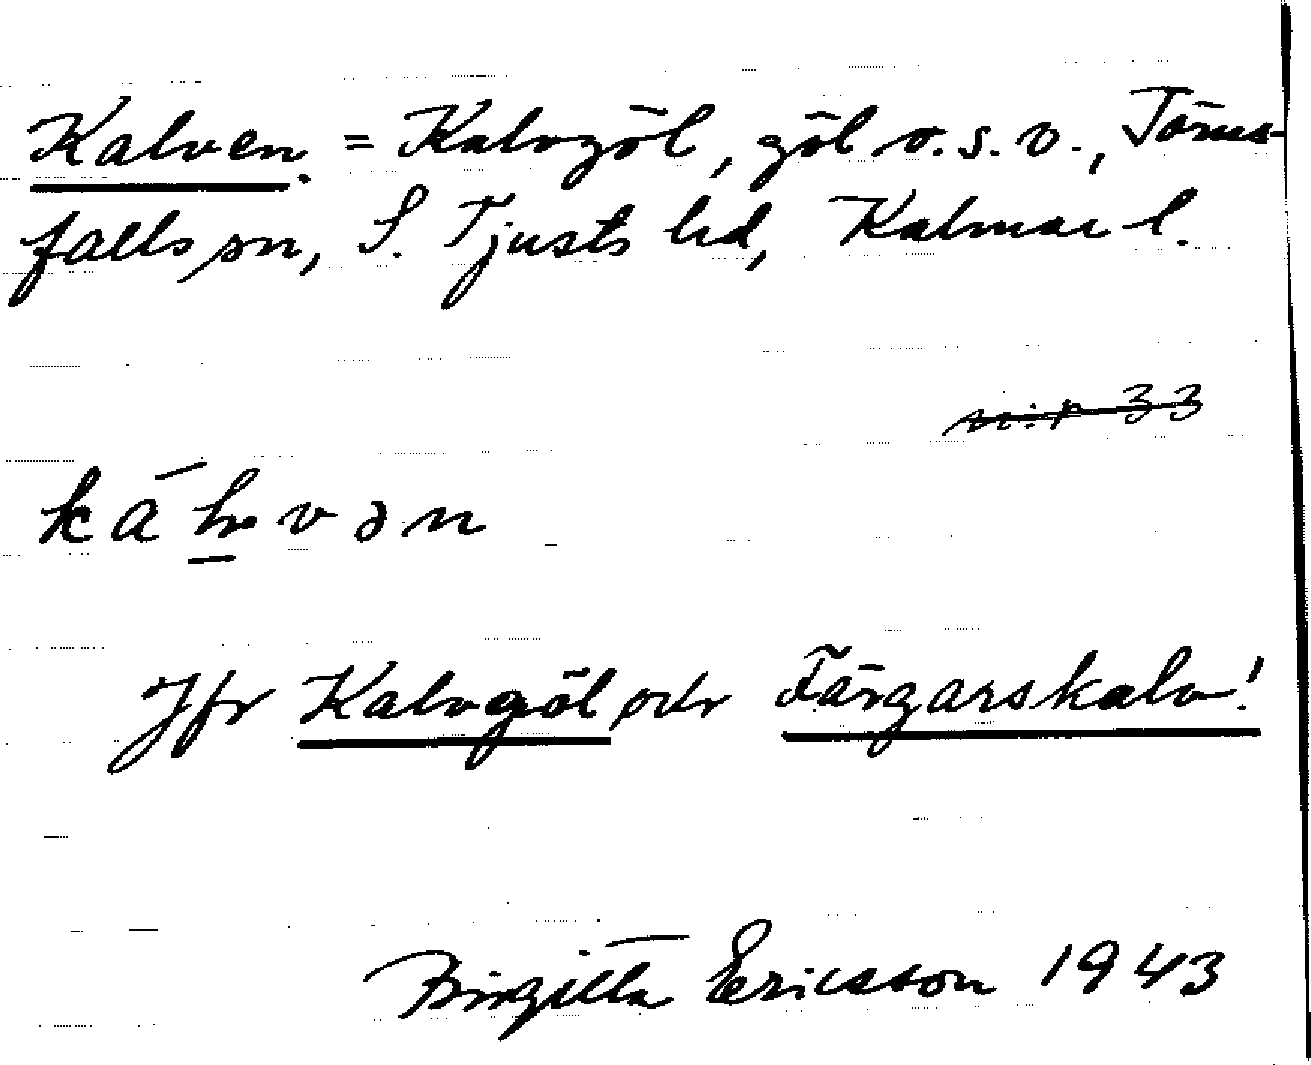 Kalven. = Kalvgöl, göl o.s.v., Törns-
falls sn, S. Tjusts hd, Kalmar l.
Jfr Kalvgöl och Färgarskalv!
Birgitta Ericsson 1943